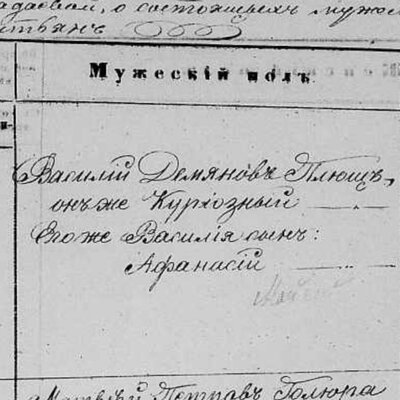 о состоящихъ мужес
Мужескій полъ
Василій Демяновъ Плющъ,
онъ же Куріозный
Его же Василія сынъ:
Афанасій
Матвѣй Петровъ Голюра